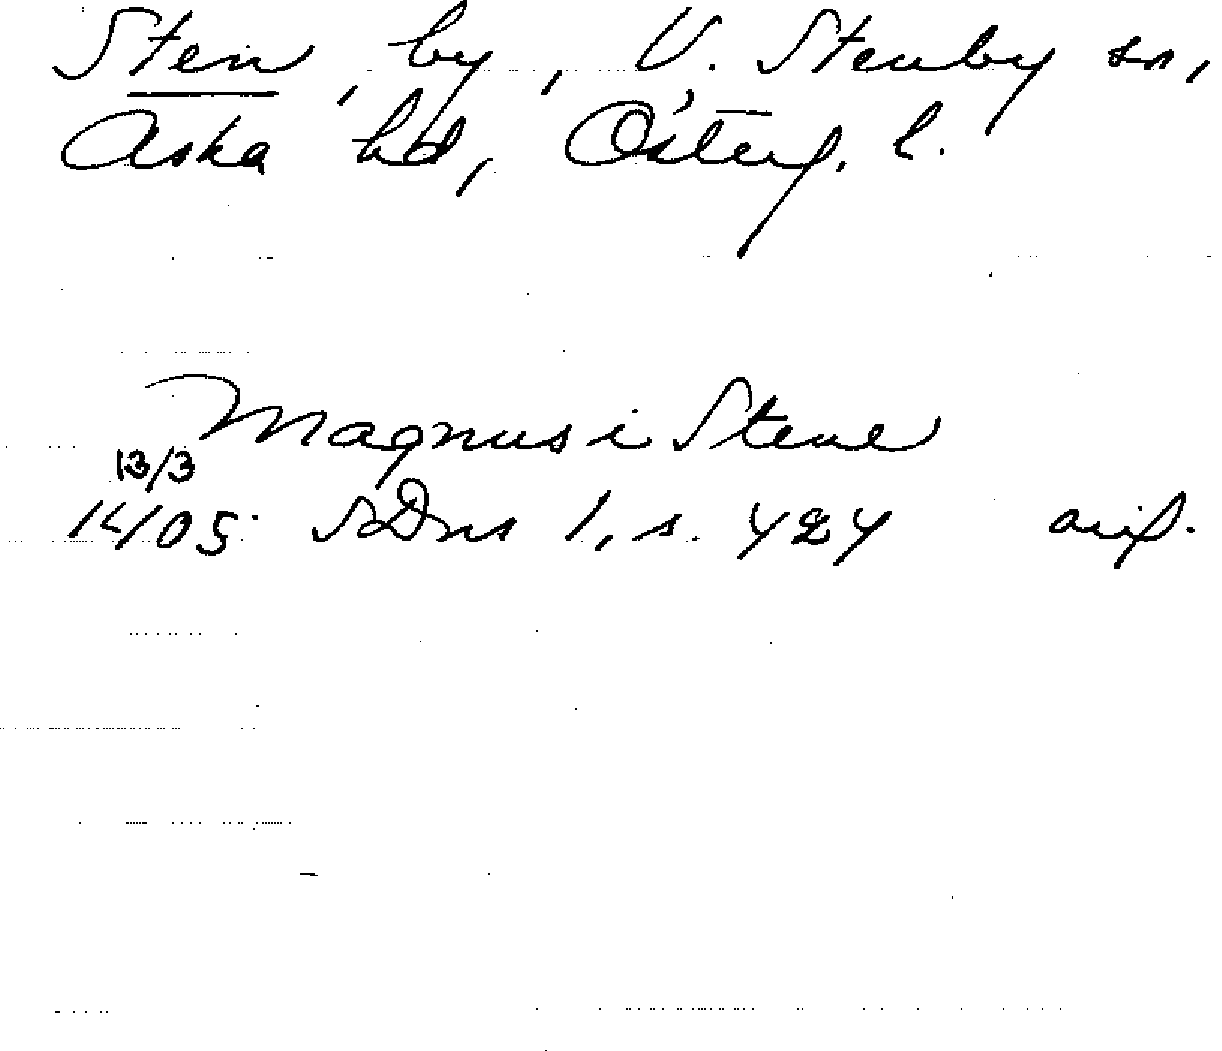 Sten, by, V. Stenby sn,
Aska hd, Österg. l.
Magnus i Stene
13/3
1405 SDns 1, s. 424 avs.